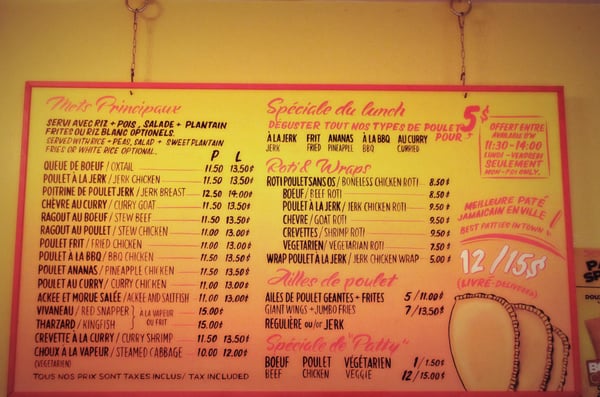 Mets Principaux
SERVI AVEC RIZ + POIS, SALADE + PLANTAIN
FRITES OU RIZ BLANC OPTIONELS.
SERVED WITH RICE + PEAS, SALAD + SWEET PLANTAIN
FRIES OR WHITE RICE OPTIONAL.
P L
QUEUE DE BOEUF / OXTAIL 11.50 13.50$
POULET À LA JERK / JERK CHICKEN 11.50 13.50$
POITRINE DE POULET JERK / JERK BREAST 12.50 14.00$
CHÈVRE AU CURRY / CURRY GOAT 11.50 13.50$
RAGOUT AU BOEUF / STEW BEEF 11.50 13.50$
RAGOUT AU POULET / STEW CHICKEN 11.00 13.00$
POULET FRIT / FRIED CHICKEN 11.00 13.00$
POULET À LA BBQ / BBQ CHICKEN 11.50 13.50$
POULET ANANAS / PINEAPPLE CHICKEN 11.50 13.50$
POULET AU CURRY / CURRY CHICKEN 11.00 13.00$
ACKEE ET MORUE SALÉE / ACKEE AND SALTFISH 11.00 13.00$
VIVANEAU / RED SNAPPER 15.00$
À LA VAPEUR
OU FRIT
THARZARD / KINGFISH 15.00$
CREVETTE À LA CURRY / CURRY SHRIMP 11.50 13.50$
CHOUX À LA VAPEUR / STEAMED CABBAGE 10.00 12.00$
(VEGETARIEN)
TOUS NOS PRIX SONT TAXES INCLUS / TAX INCLUDED
Spéciale du lunch
DÉGUSTER TOUT NOS TYPES DE POULET POUR 5$
À LA JERK FRIT ANANAS À LA BBQ AU CURRY
JERK FRIED PINEAPPLE BBQ CURRIED
OFFERT ENTRE
AVAILABLE B/W
11:30-14:00
LUNDI - VENDREDI
SEULEMENT
MON-FRI ONLY.
Roti & Wraps
ROTI POULET SANS OS / BONELESS CHICKEN ROTI 8.50$
BOEUF / BEEF ROTI 8.50$
POULET À LA JERK / JERK CHICKEN ROTI 9.50$
CHEVRE / GOAT ROTI 9.50$
CREVETTES / SHRIMP ROTI 9.50$
VEGETARIEN / VEGETARIAN ROTI 7.50$
WRAP POULET À LA JERK / JERK CHICKEN WRAP 5.00$
MEILLEURE PATÉ
JAMAICAIN EN VILLE!
BEST PATTIES IN TOWN!
12/15$
(LIVRÉ-DELIVERED)
Ailes de poulet
AILES DE POULET GEANTES + FRITES 5/11.00$
GIANT WINGS + JUMBO FRIES 7/13.50$
REGULIÈRE ou/or JERK
Spéciale de "Patty"
BOEUF POULET VÉGÉTARIEN 1/1.50$
BEEF CHICKEN VEGGIE 12/15.00$